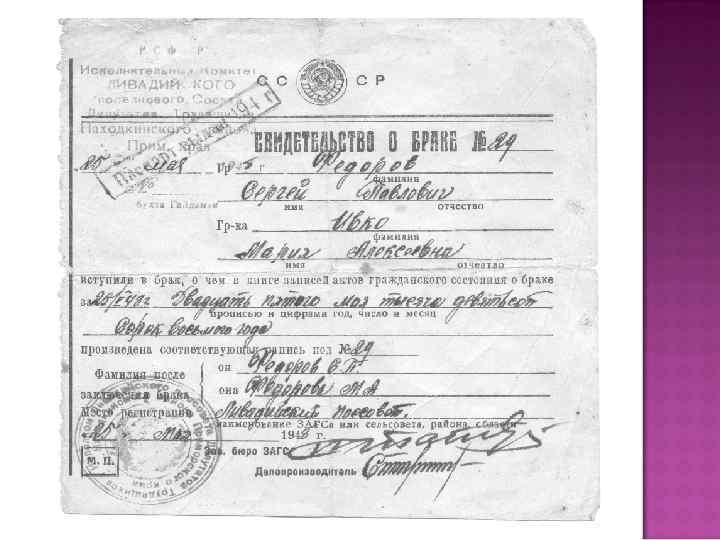 РСФ Р
Исполнительный Комитет
ЛИВАДИЙ КОГО
поселкового Совета
Депутатов Трудящихся
Находкинского
Прим. края
СС СР
СВИДЕТЕЛЬСТВО О БРАКЕ № 29
25 мая
Гр-н Федоров
фамилия
Сергей Павлович
имя отчество
бухта Гайдамак
Гр-ка Ивко
фамилия
Мария Алексеевна
имя отчество
вступили в брак, о чем в книге записей актов гражданского состояния о браке
за 25/V 48 г Двадцать пятого мая тысяча девятьсот
прописью и цифрами год, число и месяц
Сорок восьмого года
произведена соответствующая запись под № 29
Фамилия после заключения брака
он Федоров С. П.
она Федорова М А
Место регистрации Ливадийский поссовет.
наименование ЗАГСа или сельсовета, района, области
25 мая 1948 г.
М. П.
Зав. бюро ЗАГС
Делопроизводитель